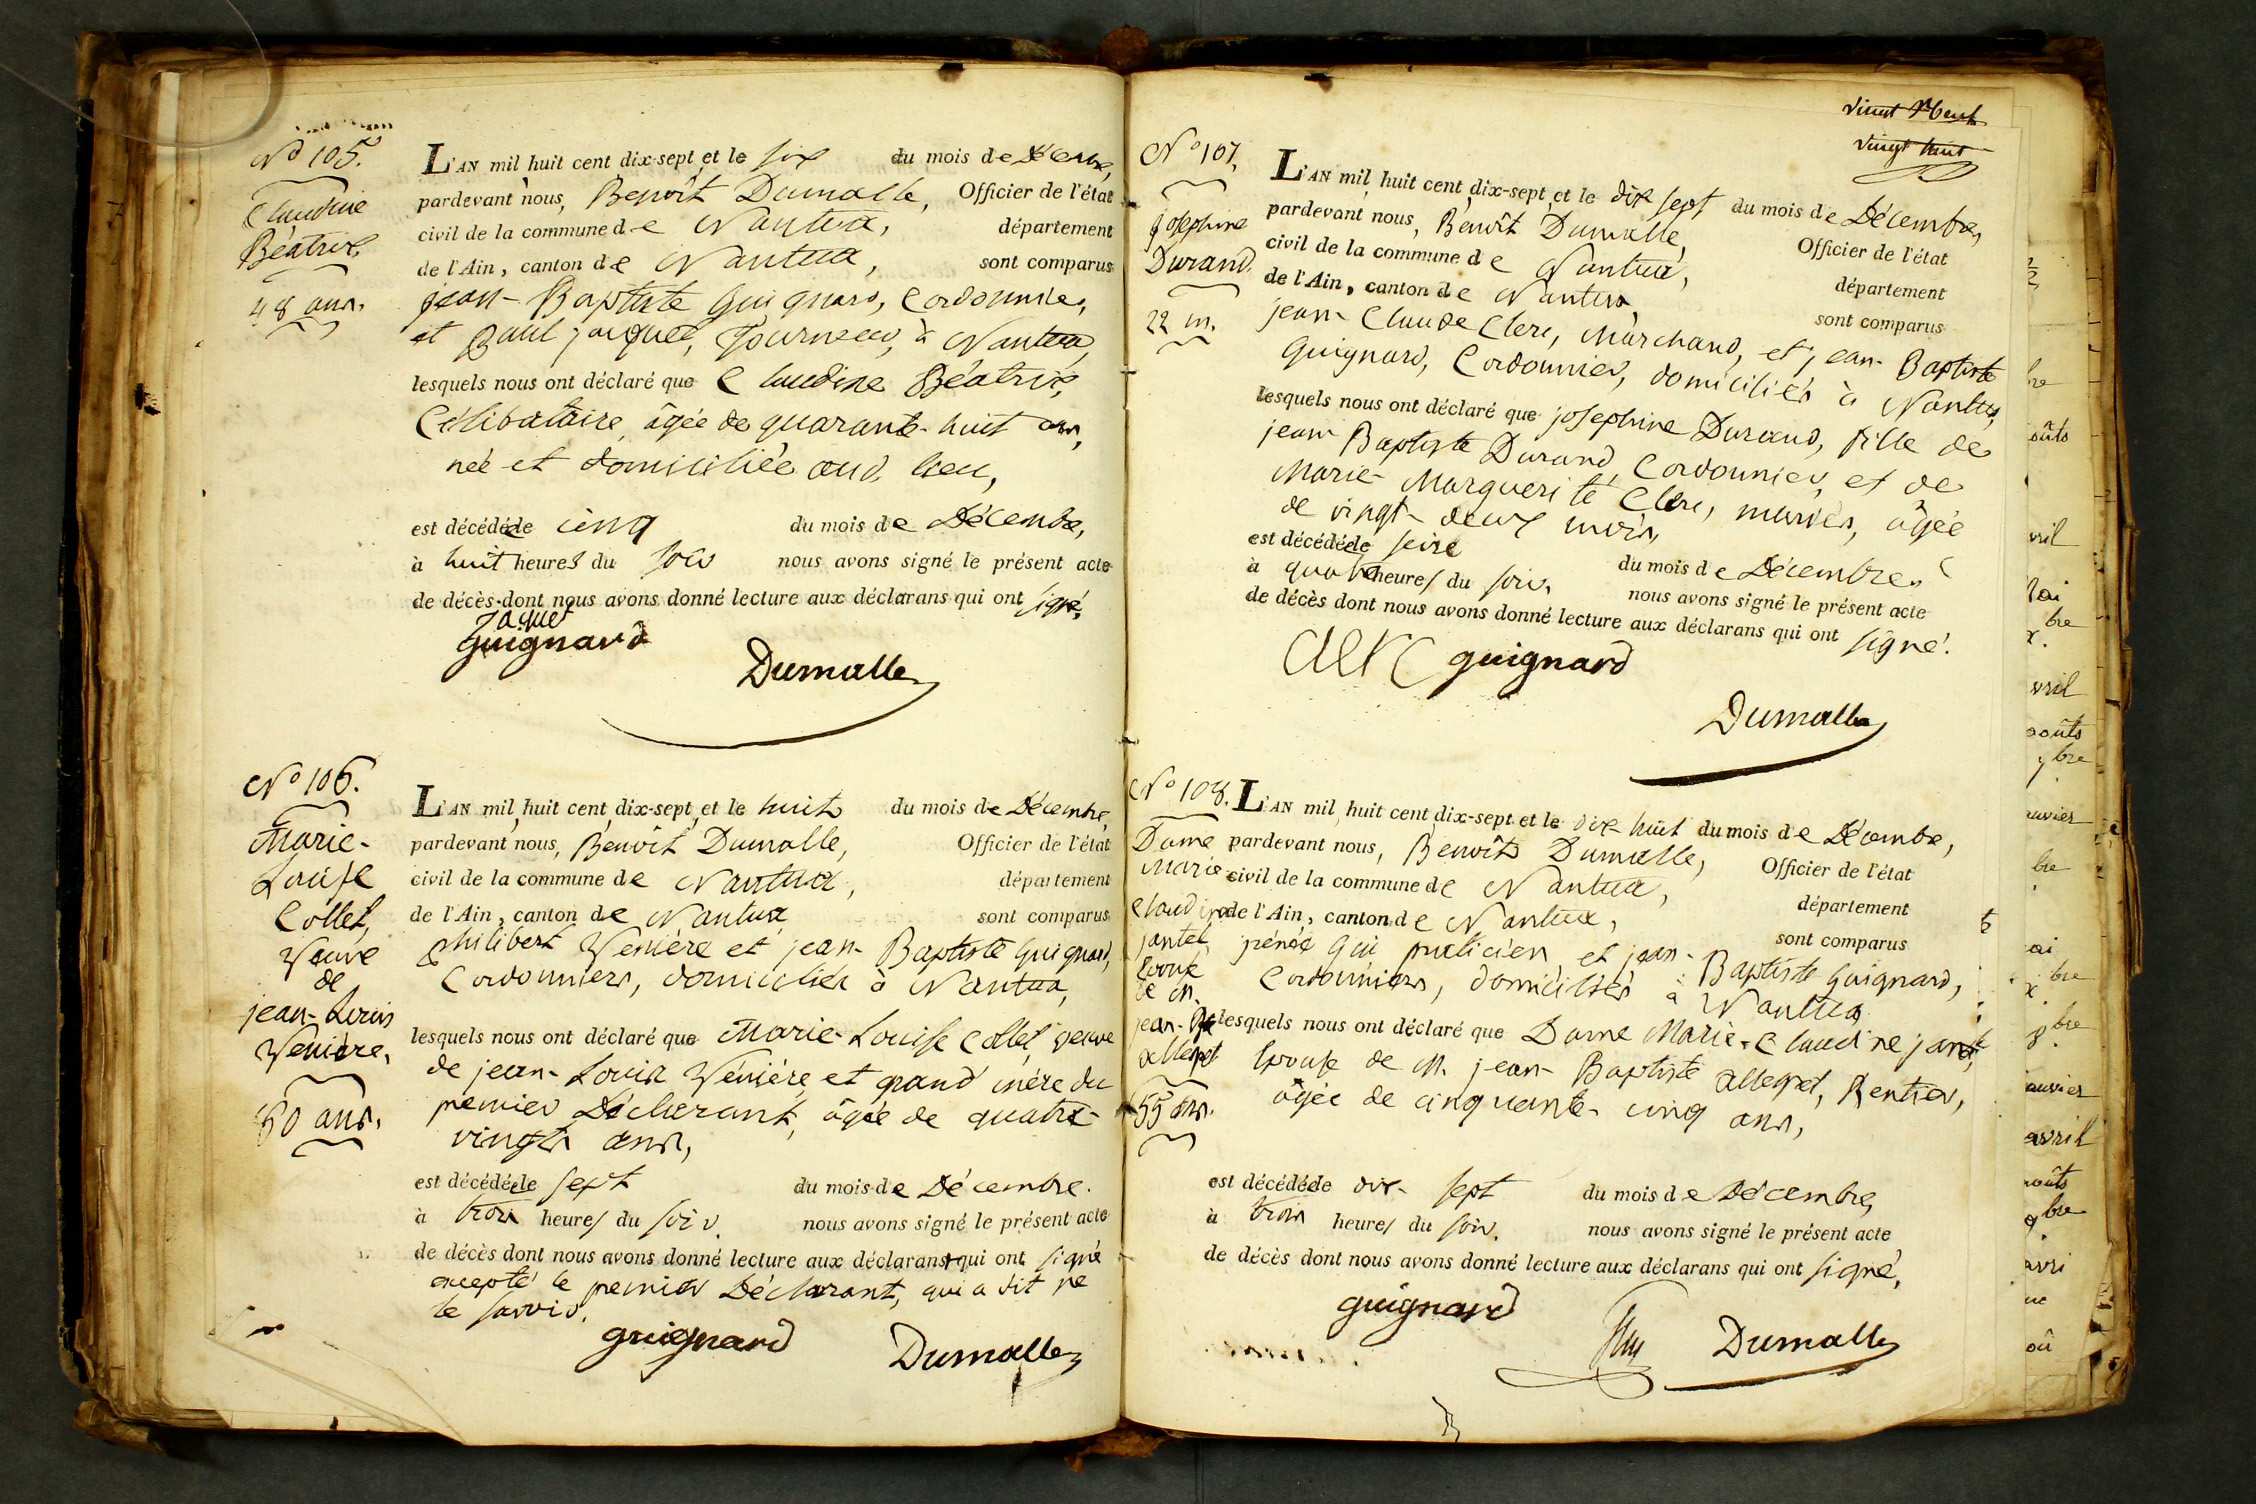 No 105.
Claudine
Béatrix,
48 ans.
L'AN mil huit cent dix-sept et le six du mois de Décembre,
pardevant nous, Benoît Dumolle, Officier de l'état
civil de la commune de Nantua, département
de l'Ain, canton de Nantua, sont comparus
jean-Baptiste Guignard, Cordonnier,
et Paul jacquet, Tourneur, à Nantua,
lesquels nous ont déclaré que Claudine Béatrix,
Célibataire, âgée de quarante-huit ans,
née et domiciliée aud. lieu,
est décédée le cinq du mois de Décembre,
à huit heures du soir nous avons signé le présent acte
de décès dont nous avons donné lecture aux déclarans qui ont signé,
Jaquet
guignard
Dumolle
No 106.
Marie-
Louise
Collet,
Veuve
de
jean-Louis
Venière,
80 ans.
L'AN mil huit cent dix-sept et le huit du mois de Décembre,
pardevant nous, Benoît Dumolle, Officier de l'état
civil de la commune de Nantua, département
de l'Ain, canton de Nantua, sont comparus
Philibert Venière et jean-Baptiste Guignard,
Cordonniers, domiciliés à Nantua,
lesquels nous ont déclaré que Marie-Louise Collet, veuve
de jean-Louis Venière, et grand mère du
premier Déclarant, âgée de quatre-
vingts ans,
est décédée le sept du mois de Décembre.
à trois heures du soir. nous avons signé le présent acte
de décès dont nous avons donné lecture aux déclarans qui ont signé
excepté le premier Déclarant, qui a dit ne
le savoir.
guignard
Dumolle
vingt huit
No 107.
josephine
Durand.
22 m.
L'AN mil huit cent dix-sept et le dix sept du mois de Décembre,
pardevant nous, Benoît Dumolle, Officier de l'état
civil de la commune de Nantua, département
de l'Ain, canton de Nantua, sont comparus
jean-Claude Clerc, Marchand, et jean-Baptiste
Guignard, Cordonnier, domiciliés à Nantua,
lesquels nous ont déclaré que josephine Durand, fille de
jean-Baptiste Durand, Cordonnier, et de
Marie-Marguerite Clerc, mariés, âgée
de vingt-deux mois,
est décédée le seize du mois de Décembre,
à quatre heures du soir. nous avons signé le présent acte
de décès dont nous avons donné lecture aux déclarans qui ont signé.
Clerc guignard
Dumolle
No 108.
Dame
Marie-
Claudine
jantet,
Epouse
de M.
jean-Bte
allegret
55 ans.
L'AN mil huit cent dix-sept et le dix-huit du mois de Décembre,
pardevant nous, Benoît Dumolle, Officier de l'état
civil de la commune de Nantua, département
de l'Ain, canton de Nantua, sont comparus
praticien et jean-Baptiste Guignard,
Cordonniers, domiciliés à Nantua
lesquels nous ont déclaré que Dame Marie-Claudine jantet,
Epouse de M. jean-Baptiste allegret, Rentier,
âgée de cinquante-cinq ans,
est décédée le dix-sept du mois de Décembre,
à trois heures du soir. nous avons signé le présent acte
de décès dont nous avons donné lecture aux déclarans qui ont signé,
guignard
Dumolle